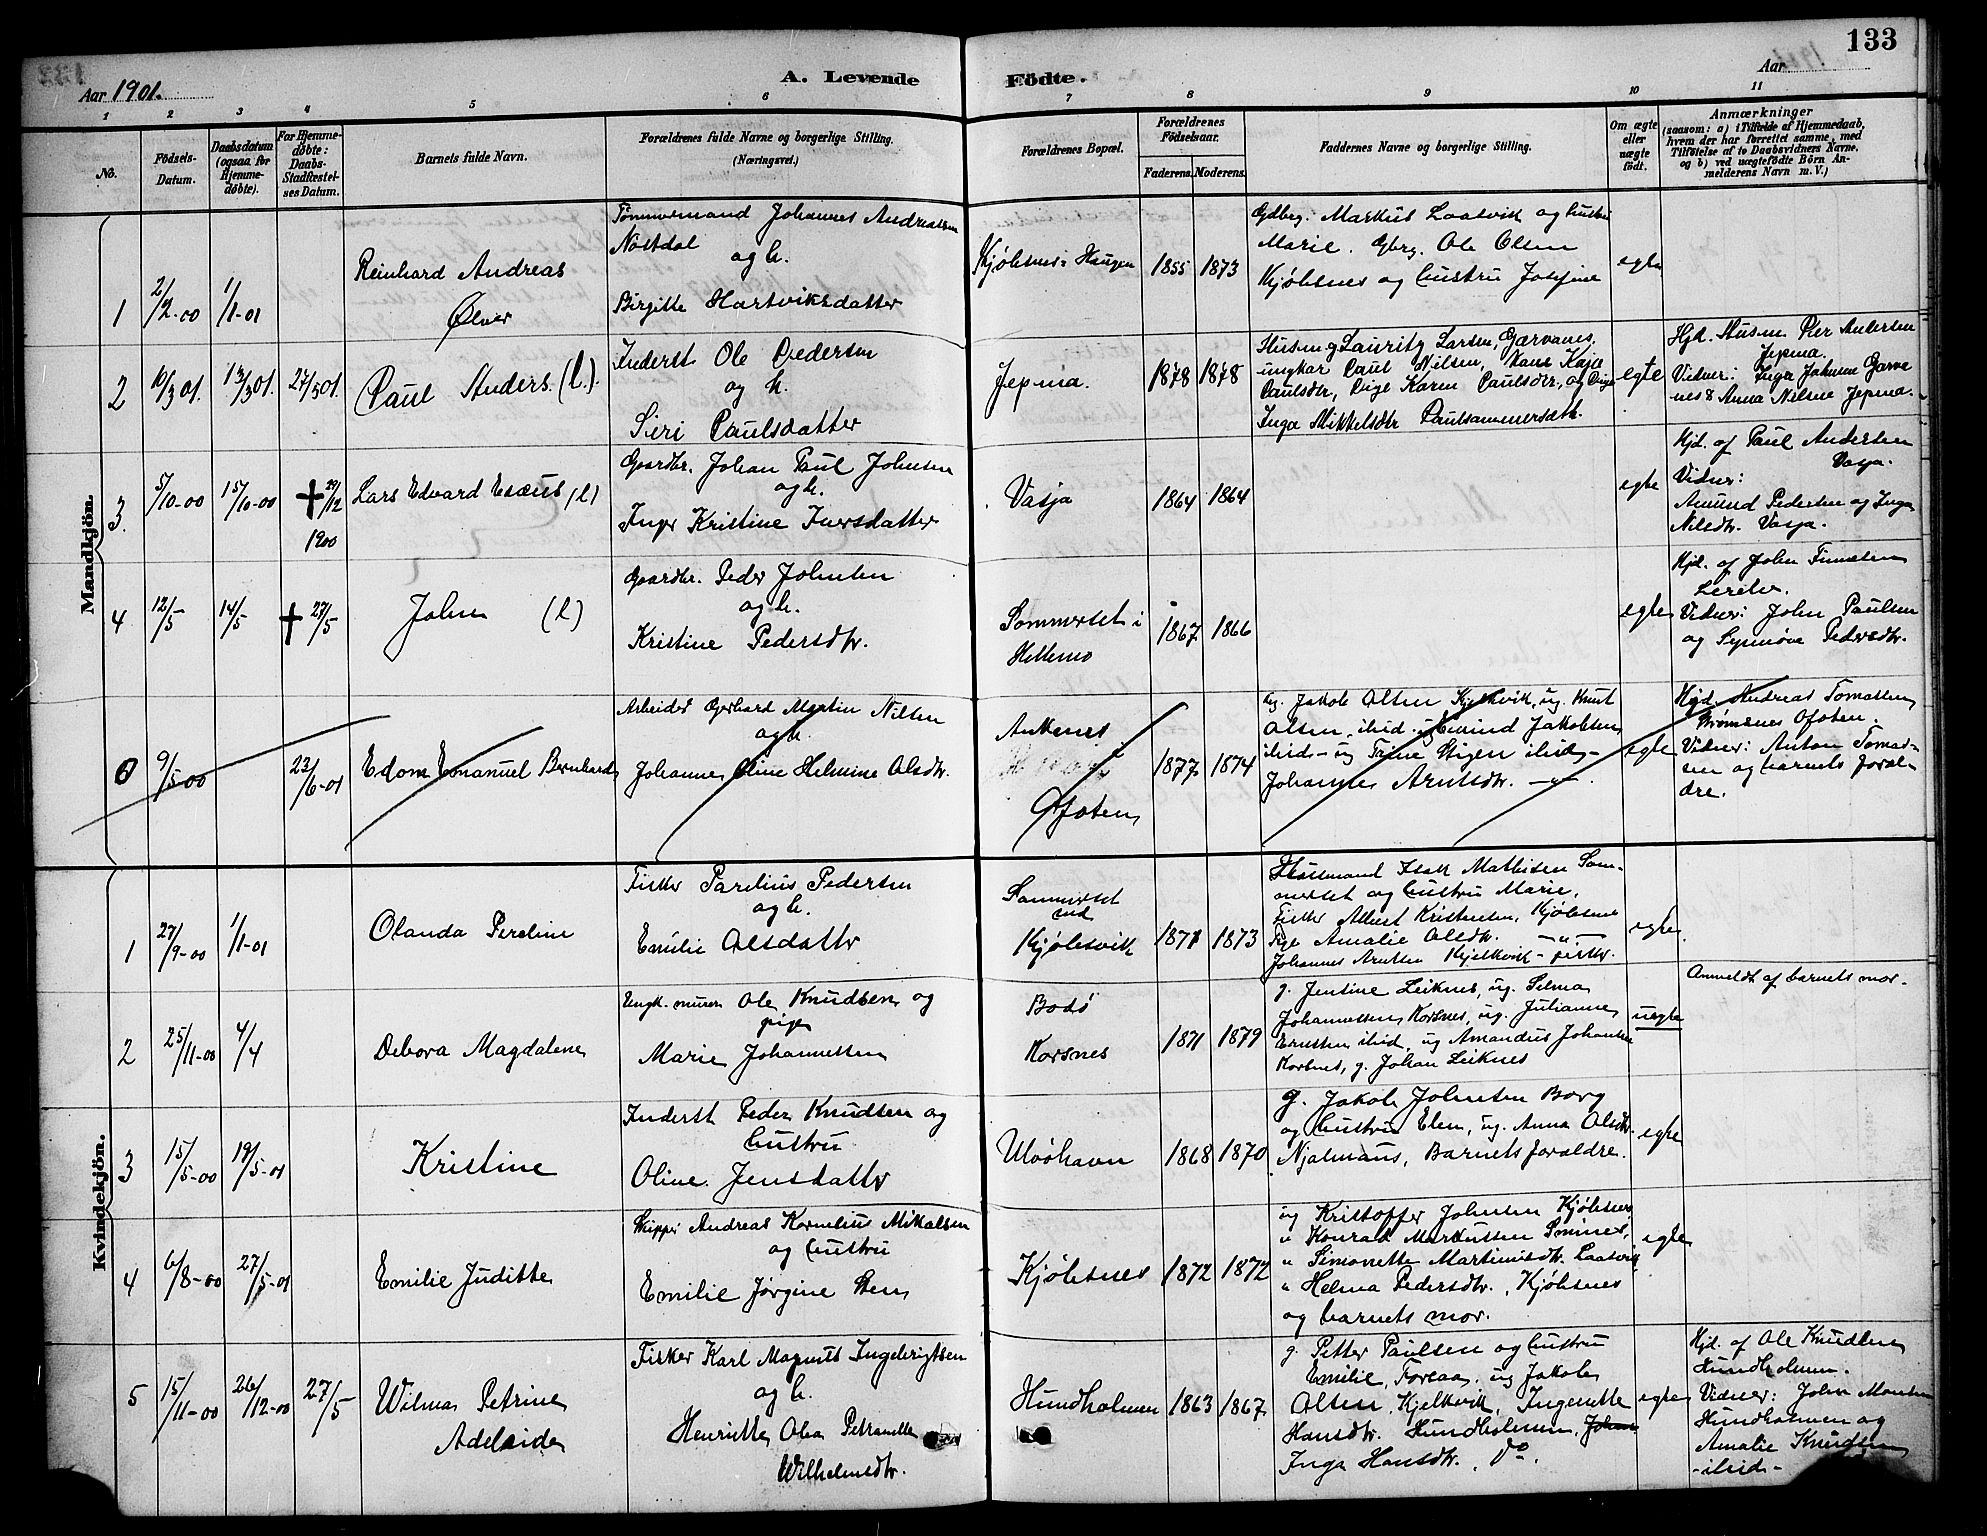 133
Aar 1901.
A. Levende Födte.
Aar
1 2 3 4 5 6 7 8 9 10 11
No.
Födsels-
Datum.
Daabsdatum
(ogsaa for
Hjemme-
döbte).
For Hjemme-
döbte:
Daabs-
Stadfæstel-
ses Datum.
Barnets fulde Navn.
Forældrenes fulde Navne og borgerlige Stilling.
(Næringsvei.)
Forældrenes Bopæl.
Forældrenes
Födselsaar.
Faderens. Moderens.
Faddernes Navne og borgerlige Stilling.
Om ægte
eller
uægte
født.
Anmærkninger
(saasom: a) i Tilfælde af Hjemmedaab,
hvem der har forrettet samme, med
Tilföielse af to Daabsvidners Navne,
og b) ved uægtefödte Börn An-
melderens Navn m. V.)
Mandkjön.
1
2/2-00
1/1-01
Reinhard Andreas
Ølver
Tømmermand Johannes Andreassen
Nøstdal
og h.
Birgitte Hartviksdatter
Kjøbsnes Haugen
1855 1873
Gdbrg. Markus Laatvik og hustru
Marie. Gbrg. Ole Olsen
Kjøbsnes og hustru Josefine
egte
2
10/3 01.
13/3 01.
27/5 01.
Paul Anders. (l.)
Inderst Ole Pedersen
og h.
Siri Paulsdatter
Jepma.
1878 1878
Husm. Lauritz Larsen, Garvanes,
ungkar Paul Nilsen,
Paulsdtr, Pige Karen Paulsdtr.,
Inga Mikkelsdtr
egte
Hjd. Husm. Per Andersen
Jepma.
Vidner: Inga Johnsen Garve
nes & Anna Nilsen Jepma.
3.
5/10-00
15/10-00
† 29/12
1900
Lars Edvard Esæus (l)
Gaardbr. Johan Paul Johnsen
og h.
Inger Kristine Iversdatter
Vasja
1864 1864
egte
Hjd. af Paul Andersen
Vasja.
Vidner:
Amund Pedersen og Inga
Nilsdtr. Vasja.
4
12/5
14/5
† 27/5
John (l)
Gaardbr. Peder Johnsen
og h.
Kristine Pedersdtr.
Sommerset i
Hellemo
1867 1866
egte
Hjd. af John
Vidner: John Paulsen
og Synnøve Pedersdtr.
9/5-00
23/6-01
Edom Emanuel Bernhard
Arbeider Gerhard Martin Nilsen
og h.
Johanne Oline Helmine Olsdtr.
Ankenes
Ofoten
1877 1874
ug. Jakob Olsen Kjelkvik, ug. Knut
Olsen, ibid. ug Eivind Jakobsen
ibid - ug Trine Stigen ibid -
Johanne Arntsdtr. - " -
egte
Hjd. Andreas Tomassen
Ofoten.
Vidner: Anton Tomas-
sen og barnets foræl-
dre.
Kvindekjön.
1
27/9-00
1/1-01
Olanda Pereline
Fisker Parelius Pedersen
og h.
Emilie Olsdatter
Sommerset
ved
Kjøbsvik
1871 1873
Husmand Isak Mathisen Som-
merset og hustru Marie,
Fisker Albert Kristensen, Kjøbsnes
Pge Amalie Olsdtr. - " -
Johannes Arntsen Kjelkvik - fisker.
egte
2
25/11-00
4/4
Debora Magdalene
Ungk. murer Ole Knudsen og
pige
Marie Johannessen
Bodö
Korsnes
1871 1879
g. Jentine Leiknes, ug. Selma
Johannessen Korsnes, ug. Julianne
Erntsen ibid, ug Amandus Johansen
Korsnes, g. Johan Leiknes
uegte
Anmeldt af barnets mor.
3
15/5-00
19/5-01
Kristine
Inderst Peder Knudsen og
hustru
Oline Jensdatter
Ulvöhavn
1868 1870
g. Jakob Johnsen Borg
og hustru Elen, ug. Anna Olsdtr.
Njalmaus, Barnets forældre.
egte
4
6/8-00
27/5-01
Emilie Juditte
Skipper Andreas Kornelius Mikalsen
og hustru
Emilie Jørgine Sten
Kjøbsnes
1872 1872
ug Kristoffer Johnsen Kjøbsnes
" Konrad Markussen
" Simonette Martinusdtr. Laatvik
" Helma Pedersdtr., Kjøbsnes
og barnets mor.
egte
5
15/11-00
26/12-00
27/5
Wilma Petrine
Adelaide
Fisker Karl Magnus Ingebrigtsen
og h.
Henriette Olea Petranelle
Wilhelmsdtr.
Hundholmen
1863 1867
g. Petter Paulsen og hustru
Emilie, Foreaa, ug Jakob
Olsen, Kjelkvik, Ingenette
Hansdtr. Hundholmen, Johan
Inga Hansdtr. Do.
egte
Hjd. af Ole Knudsen
Hundholmen.
Vidner: John Monsen
Hundholmen og
Amalie Knudsen
-ibid-